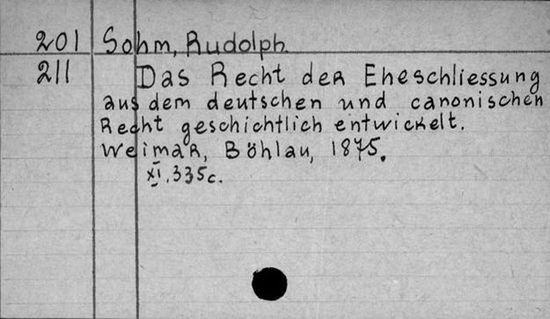 201 Sohm, Rudolph.
211 Das Recht der Eheschliessung
aus dem deutschen und canonischen
Recht geschichtlich entwickelt.
Weimar, Böhlau, 1875.
XI, 335c.